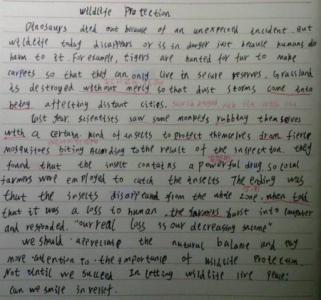 Wildlife Protection
Dinosaurs died out because of an unexpected incident. But
wildlife today disappears or is in danger just because humans do
harm to it. For example, tigers are hunted for fur to make
carpets so that they can only live in secure reserves. Grassland
is destroyed without mercy so that dust storms come into
being affecting distant cities.
Last year. scientists saw some monkeys rubbing themselves
with a certain kind of insects to protect themselves from fierce
mosquitoes biting According to the result of the inspection, they
found that the insect contains a powerful drug so local
farmers were employed to catch the insects The ending was
that the insects disappeared from the whole zone. when told
that it was a loss to human, the farmers burst into laughter
and responded. "our real loss is our decreasing income"
we should appreciate the natural balance and pay
more attention to the importance of wildlife protection.
Not until we succeed in letting wildlife live peace
can we smile in relief.